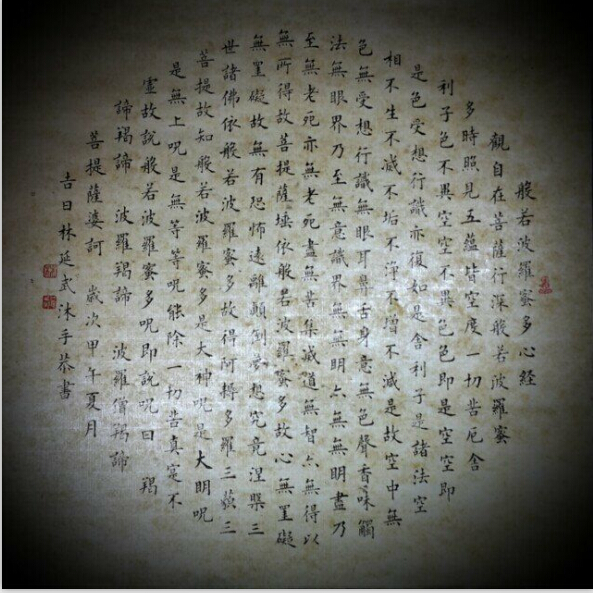 般若波羅蜜多心経
觀自在菩薩行深般若波羅蜜
多時照見五蘊皆空度一切苦厄舍
利子色不異空空不異色色即是空空即
是色受想行識亦復如是舍利子是諸法空
相不生不滅不垢不淨不增不減是故空中無
色無受想行識無眼耳鼻舌身意無色聲香味觸
法無眼界乃至無意識界無無明亦無無明盡乃
至無老死亦無老死盡無苦集滅道無智亦無得以
無所得故菩提薩埵依般若波羅蜜多故心無罣礙
無罣礙故無有恐怖遠離顛倒夢想究竟涅槃三
世諸佛依般若波羅蜜多故得阿耨多羅三藐三
菩提故知般若波羅蜜多是大神呪是大明呪
是無上呪是無等等呪能除一切苦真寔不
虛故說般若波羅蜜多呪即說呪曰 羯
諦羯諦 波羅羯諦 波羅僧羯諦
菩提薩婆訶 歲次甲午夏月
吉日林延武沐手恭書